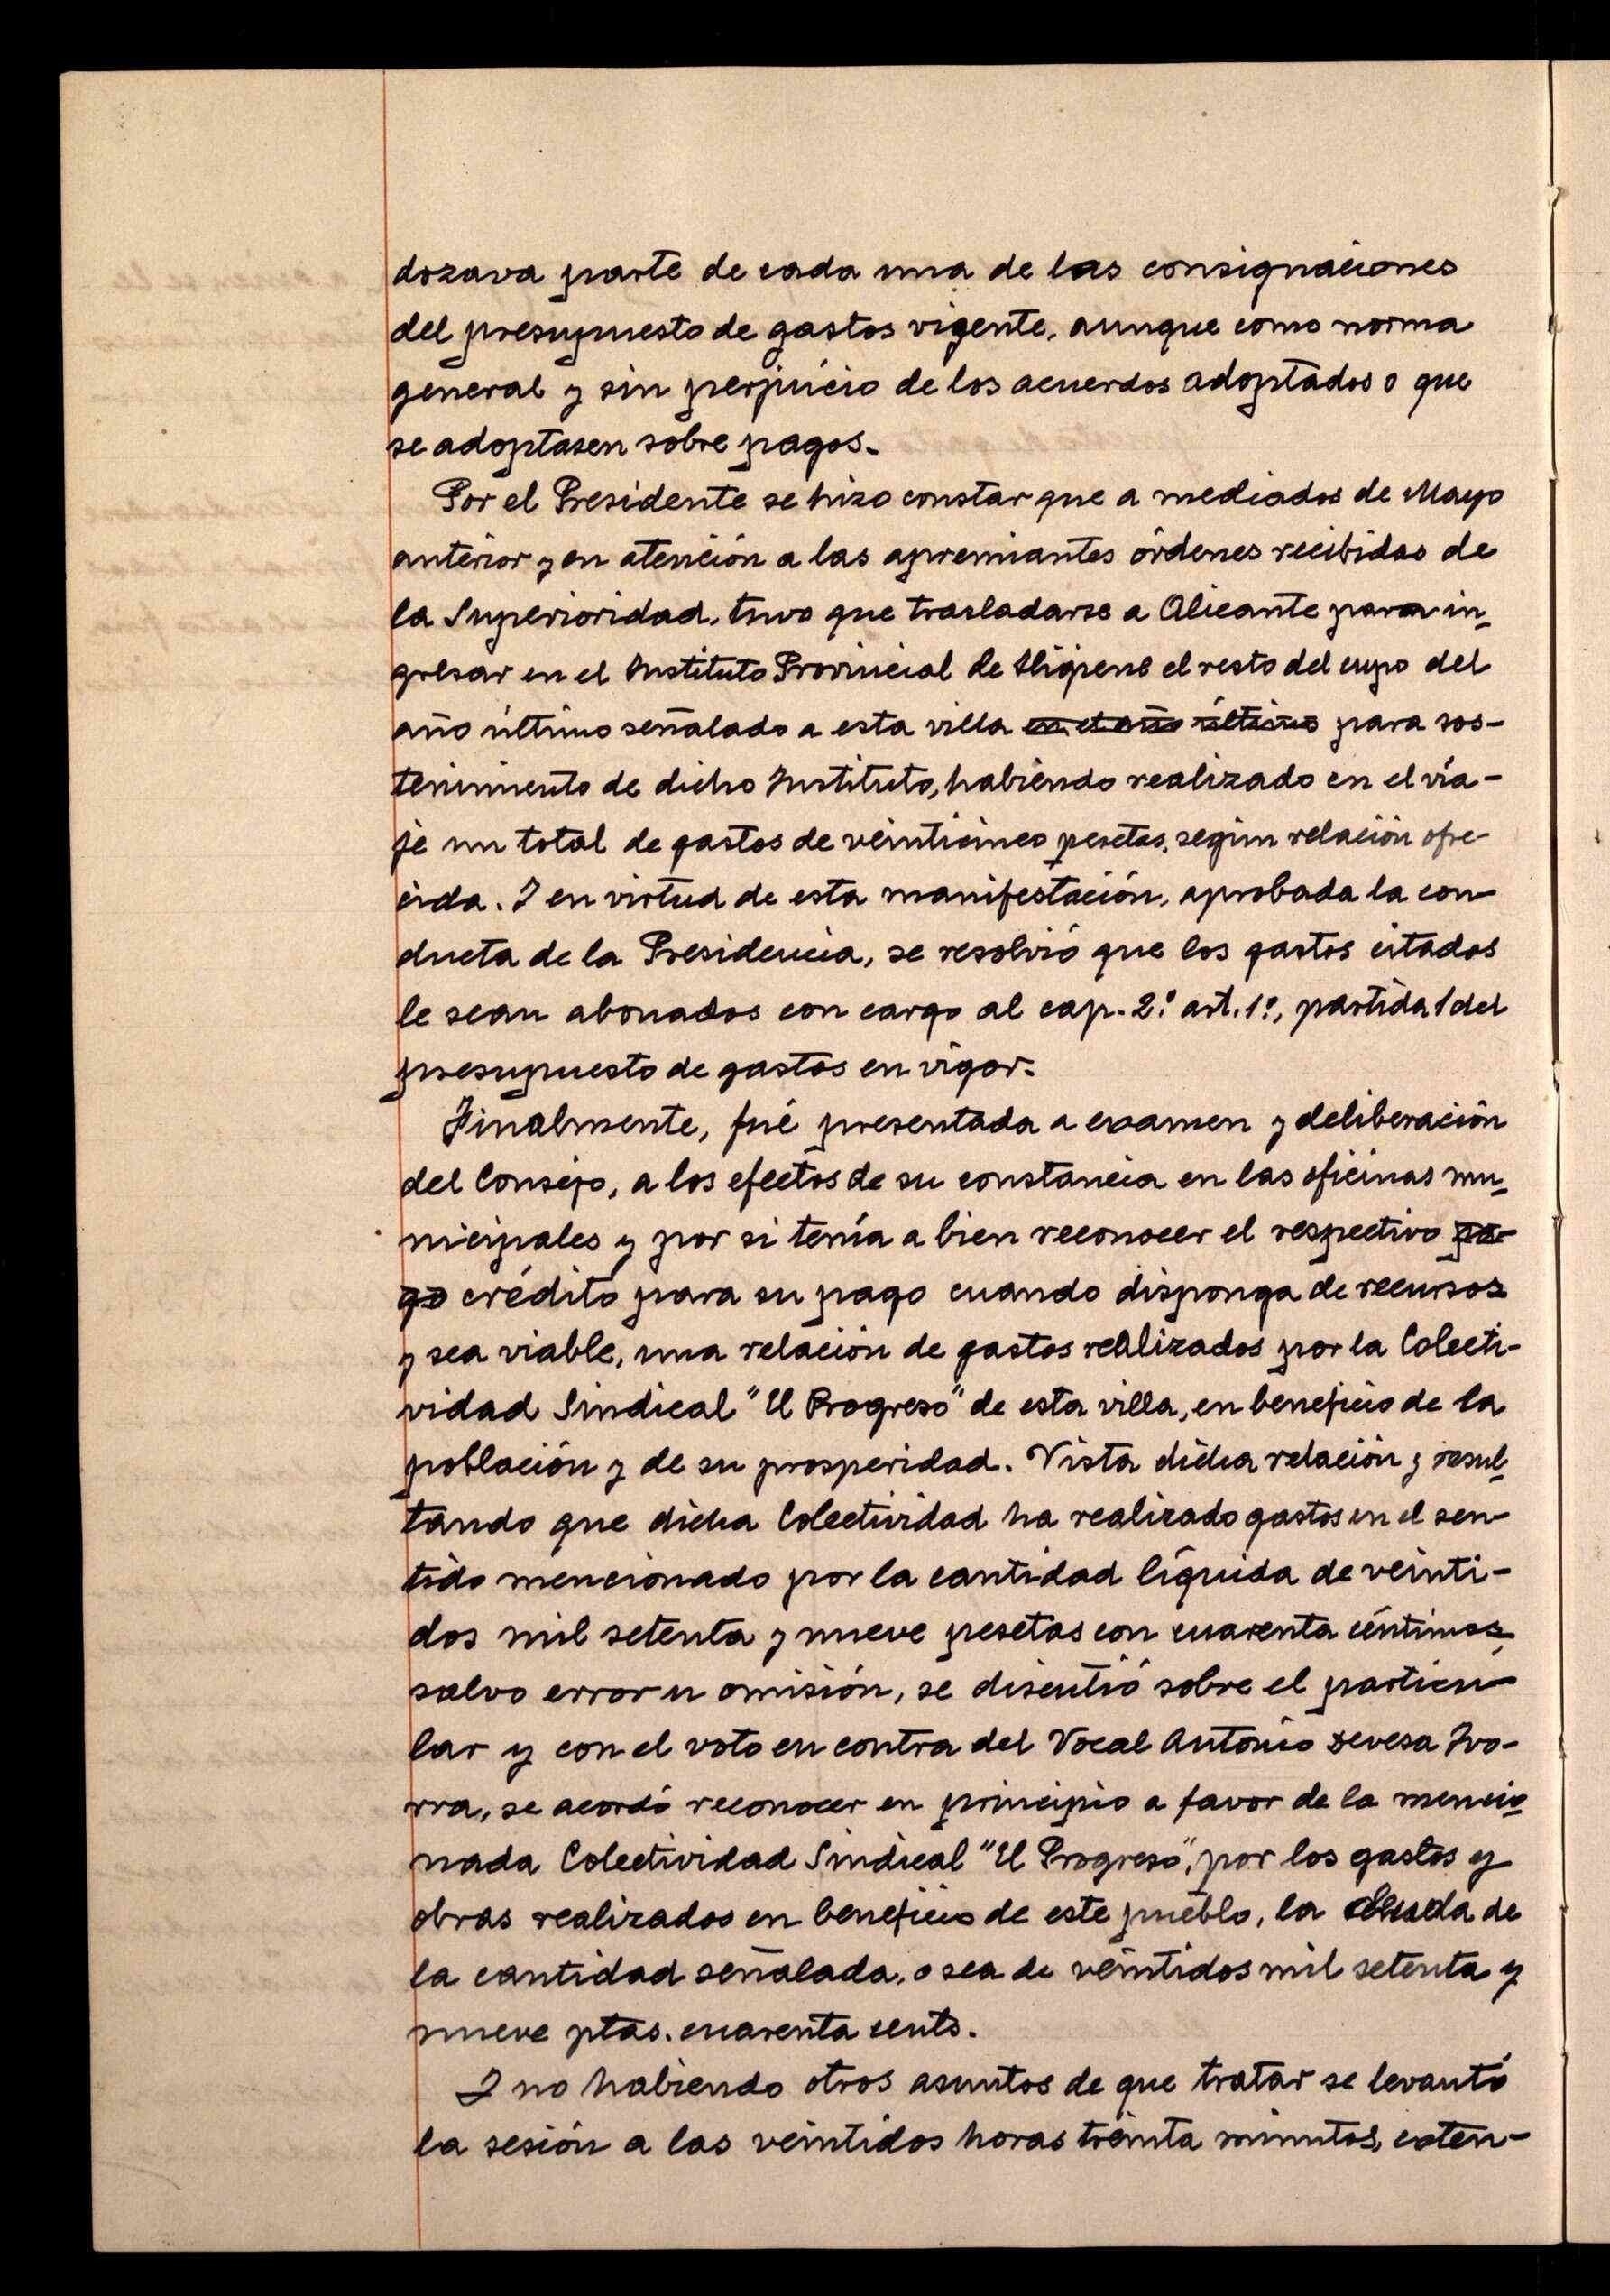 dozava parte de cada una de las consignaciones
del presupuesto de gastos vigente, aunque como norma
general y sin perjuicio de los acuerdos adoptados o que
se adoptasen sobre pagos.-
Por el Presidente se hizo constar que a mediados de Mayo
anterior y en atención a las apremiantes órdenes recibidas de
la Superioridad, tuvo que trasladarse a Alicante para in-
gresar en el Instituto Provincial de Higiene el resto del cupo del
año último señalado a esta villa en el año último para sos-
tenimiento de dicho Instituto, habiendo realizado en el via-
je un total de gastos de veinticinco pesetas, según relación ofre-
cida. Y en virtud de esta manifestación, aprobada la con-
ducta de la Presidencia, se resolvió que los gastos citados
le sean abonados con cargo al cap. 2.º art. 1.º, partida 1 del
presupuesto de gastos en vigor.-
Finalmente, fué presentada a examen y deliberación
del Consejo, a los efectos de su constancia en las oficinas mu-
nicipales y por si tenía a bien reconocer el respectivo pa-
go crédito para su pago cuando disponga de recursos
y sea viable, una relación de gastos realizados por la Colecti-
vidad Sindical "El Progreso" de esta villa, en beneficio de la
población y de su prosperidad. Vista dicha relación y resul-
tando que dicha Colectividad ha realizado gastos en el sen-
tido mencionado por la cantidad líquida de veinti-
dos mil setenta y nueve pesetas con cuarenta céntimos,
salvo error u omisión, se discutió sobre el particu-
lar y con el voto en contra del Vocal Antonio Devesa Ivo-
rra, se acordó reconocer en principio a favor de la mencio-
nada Colectividad Sindical "El Progreso", por los gastos y
obras realizados en beneficio de este pueblo, la deuda de
la cantidad señalada, o sea de veintidos mil setenta y
nueve ptas. cuarenta cents.
Y no habiendo otros asuntos de que tratar se levantó
la sesión a las veintidos horas treinta minutos, exten-